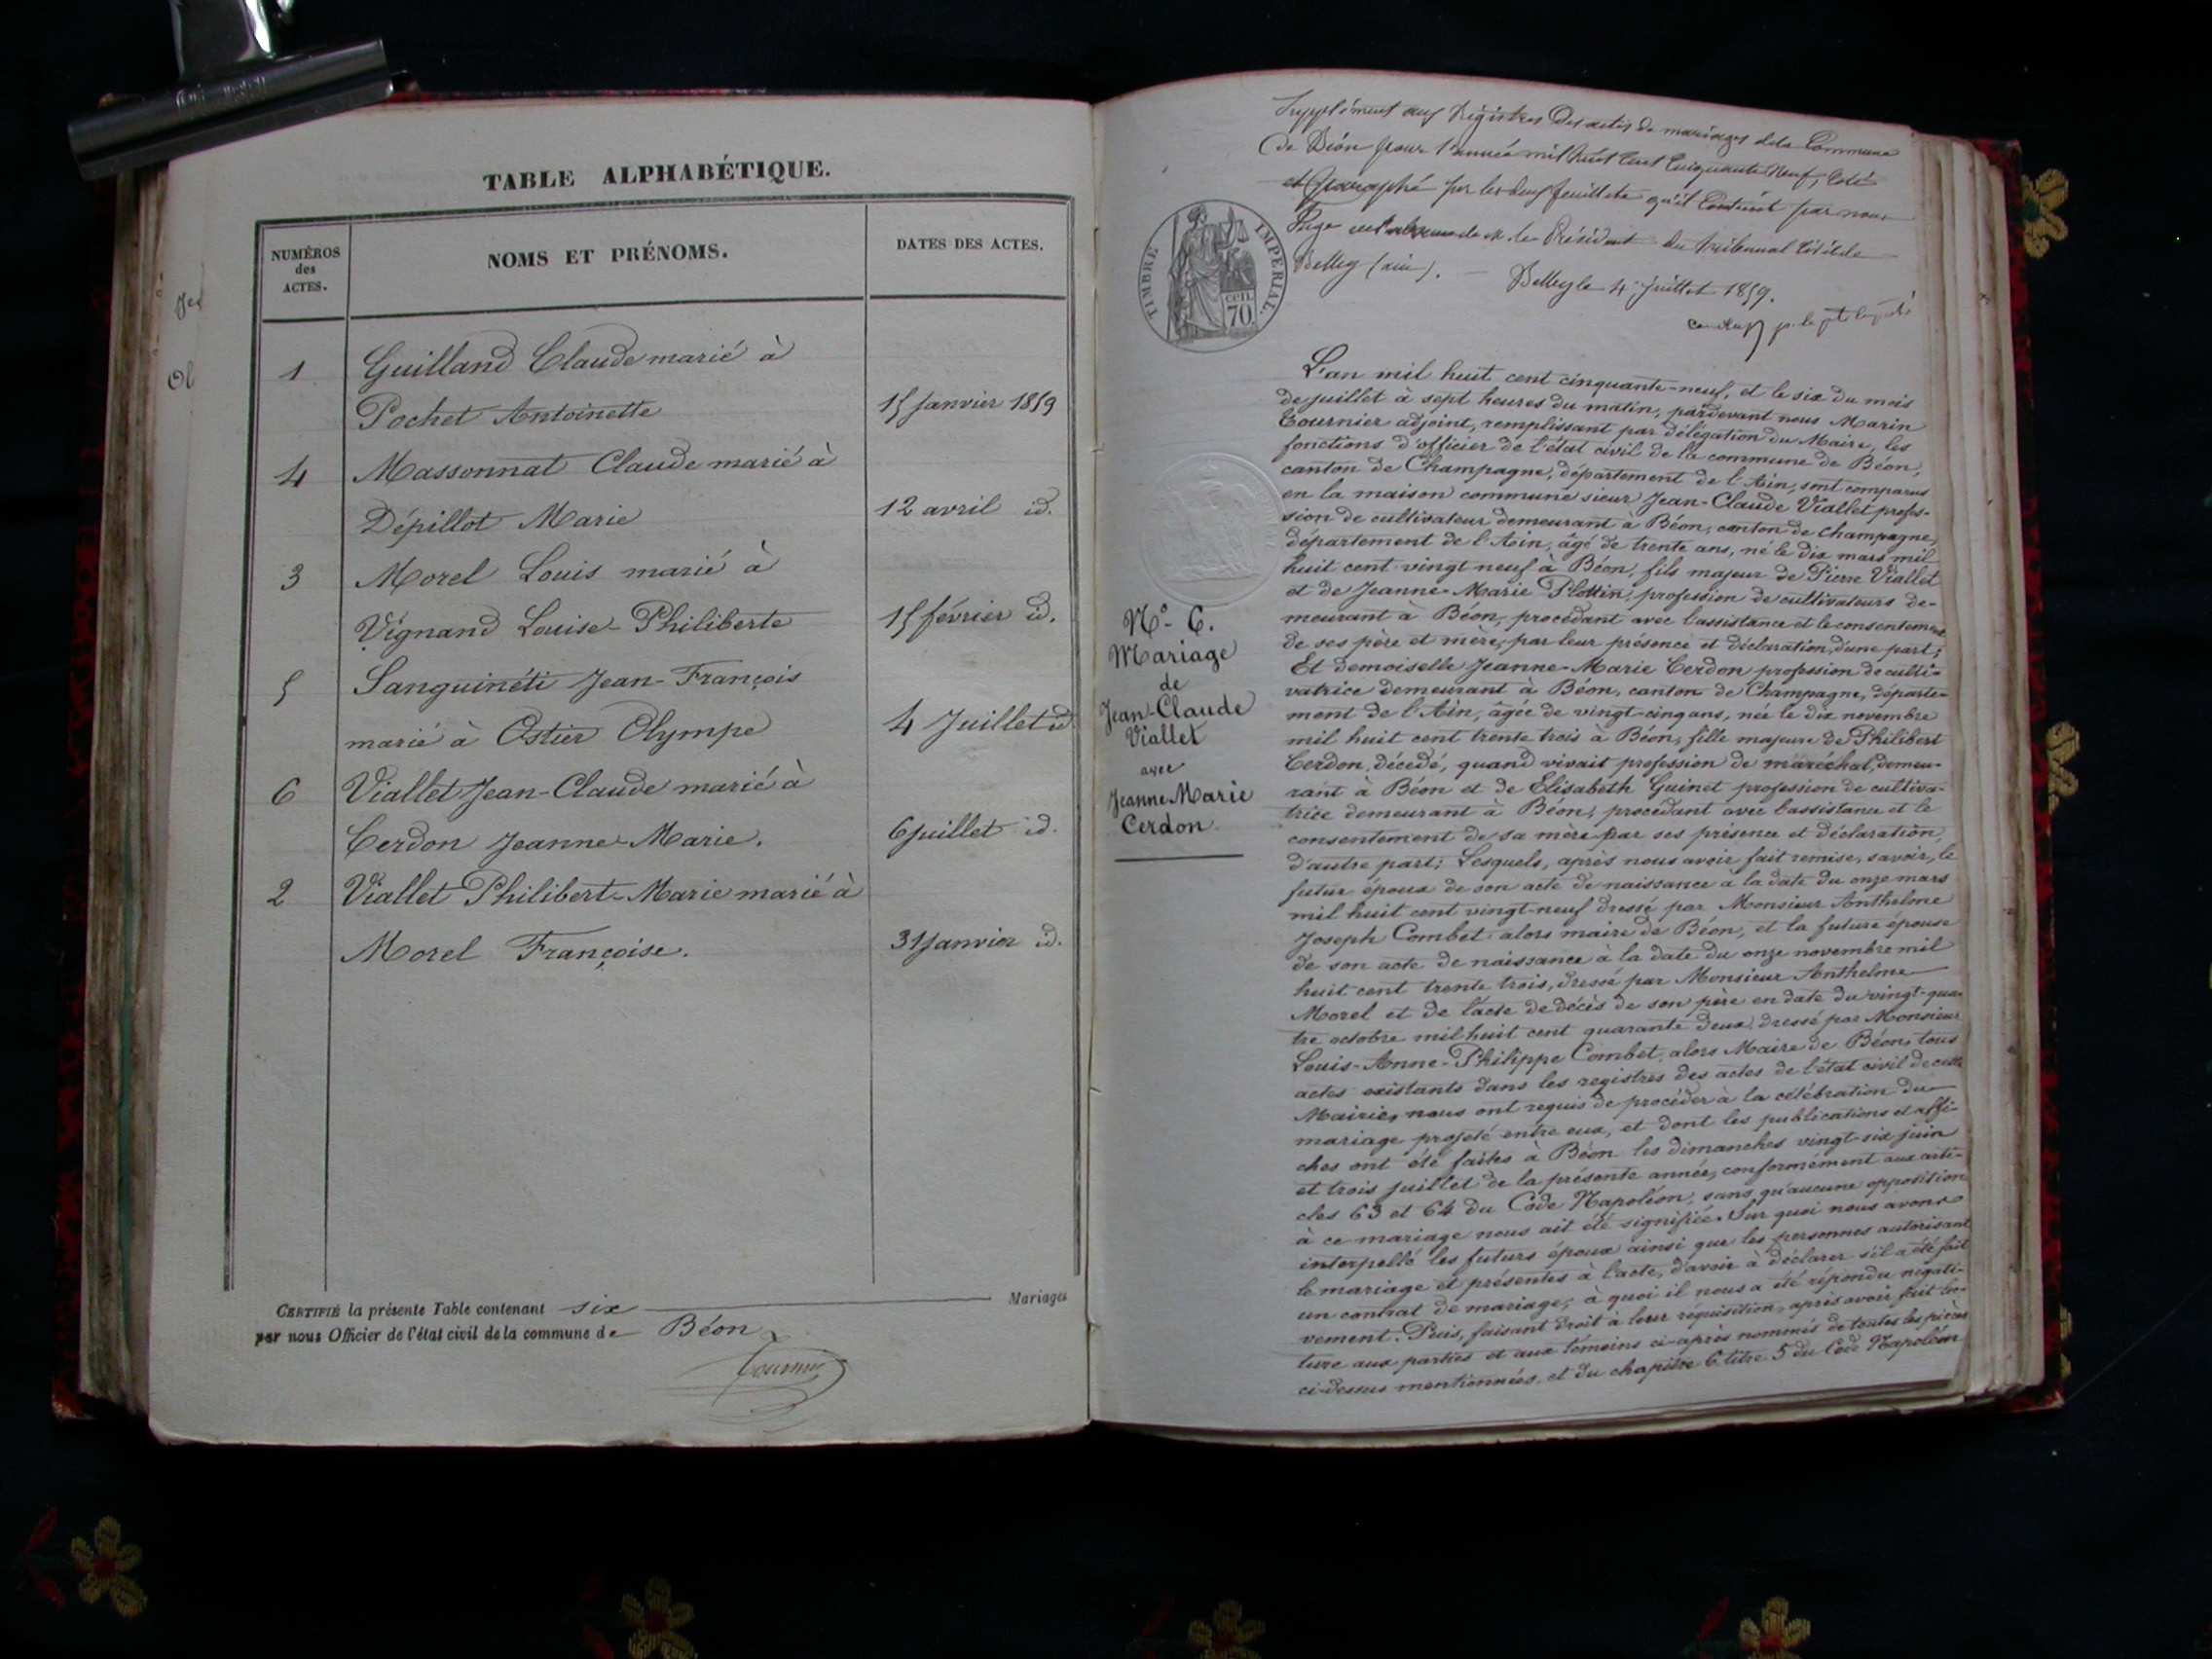 TABLE ALPHABÉTIQUE.
NUMÉROS des ACTES.
NOMS ET PRÉNOMS.
DATES DES ACTES.
1 Guilland Claude marié à
Pochet Antoinette 15 Janvier 1859
4 Massonnat Claude marié à
Dépillot Marie 12 avril id.
3 Morel Louis marié à
Vignand Louise-Philiberte 15 février id.
5 Sanguinéti Jean-François
marié à Ostier Olympe 4 Juillet id
6 Viallet Jean-Claude marié à
Cerdon Jeanne-Marie. 6 juillet id.
2 Viallet Philibert-Marie marié à
Morel Françoise. 31 Janvier id.
CERTIFIÉ la présente Table contenant six Mariages
par nous Officier de l'état civil de la commune de Béon
Tournier
Supplément aux Régistres Des actes de mariages de la Commune
De Béon pour l'année mil huit Cent Cinquante Neuf, Coté
et paraphé sur les deux feuillets qu'il Contient par nous
Juge de M. le Président du tribunal Civil de
Belley (ain). — Belley le 4 Juillet 1859.
TIMBRE IMPERIAL.
cen.
70
L'an mil huit cent cinquante-neuf, et le six du mois
de juillet à sept heures du matin, pardevant nous Marin
Tournier adjoint, remplissant par délégation du Maire, les
fonctions d'officier de l'état civil de la commune de Béon,
canton de Champagne, département de l'Ain, sont comparus
en la maison commune sieur Jean-Claude Viallet profes-
sion de cultivateur demeurant à Béon, canton de Champagne,
département de l'Ain, âgé de trente ans, né le dix mars mil
huit cent vingt neuf à Béon, fils majeur de Pierre Viallet
et de Jeanne-Marie Plottin, profession de cultivateurs de-
meurant à Béon, procédant avec l'assistance et le consentement
de ses père et mère, par leur présence et déclaration, d'une part;
Et demoiselle Jeanne-Marie Cerdon profession de culti-
vatrice demeurant à Béon, canton de Champagne, départe-
ment de l'Ain, âgée de vingt-cinq ans, née le dix novembre
mil huit cent trente trois à Béon, fille majeure de Philibert
Cerdon, décédé, quand vivait profession de maréchal, demeu-
rant à Béon et de Elisabeth Guinet profession de cultiva-
trice demeurant à Béon, procédant avec l'assistance et le
consentement de sa mère par ses présence et déclaration,
d'autre part; Lesquels, après nous avoir fait remise, savoir, le
futur époux de son acte de naissance à la date du onze mars
mil huit cent vingt-neuf dressé par Monsieur Anthelme
Joseph Combet alors maire de Béon, et la future épouse
de son acte de naissance à la date du onze novembre mil
huit cent trente trois, dressé par Monsieur Anthelme
Morel et de l'acte de décès de son père en date du vingt-qua-
tre octobre mil huit cent quarante deux dressé par Monsieur
Louis-Anne-Philippe Combet, alors Maire de Béon, tous
actes existants dans les registres des actes de l'état civil de cette
Mairie, nous ont requis de procéder à la célébration du
mariage projeté entre eux, et dont les publications et affi-
ches ont été faites à Béon les dimanches vingt-six juin
et trois juillet de la présente année, conformément aux arti-
cles 63 et 64 du Code Napoléon, sans qu'aucune opposition
à ce mariage nous ait été signifiée. Sur quoi nous avons
interpellé les futurs époux ainsi que les personnes autorisant
le mariage et présentes à l'acte, d'avoir à déclarer s'il a été fait
un contrat de mariage; à quoi il nous a été répondu négati-
vement. Puis, faisant droit à leur réquisition, après avoir fait lec-
ture aux parties et aux témoins ci-après nommés de toutes les pièces
ci-dessus mentionnées, et du chapitre 6 titre 5 du Code Napoléon
N° 6.
Mariage
de
Jean-Claude
Viallet
avec
Jeanne Marie
Cerdon